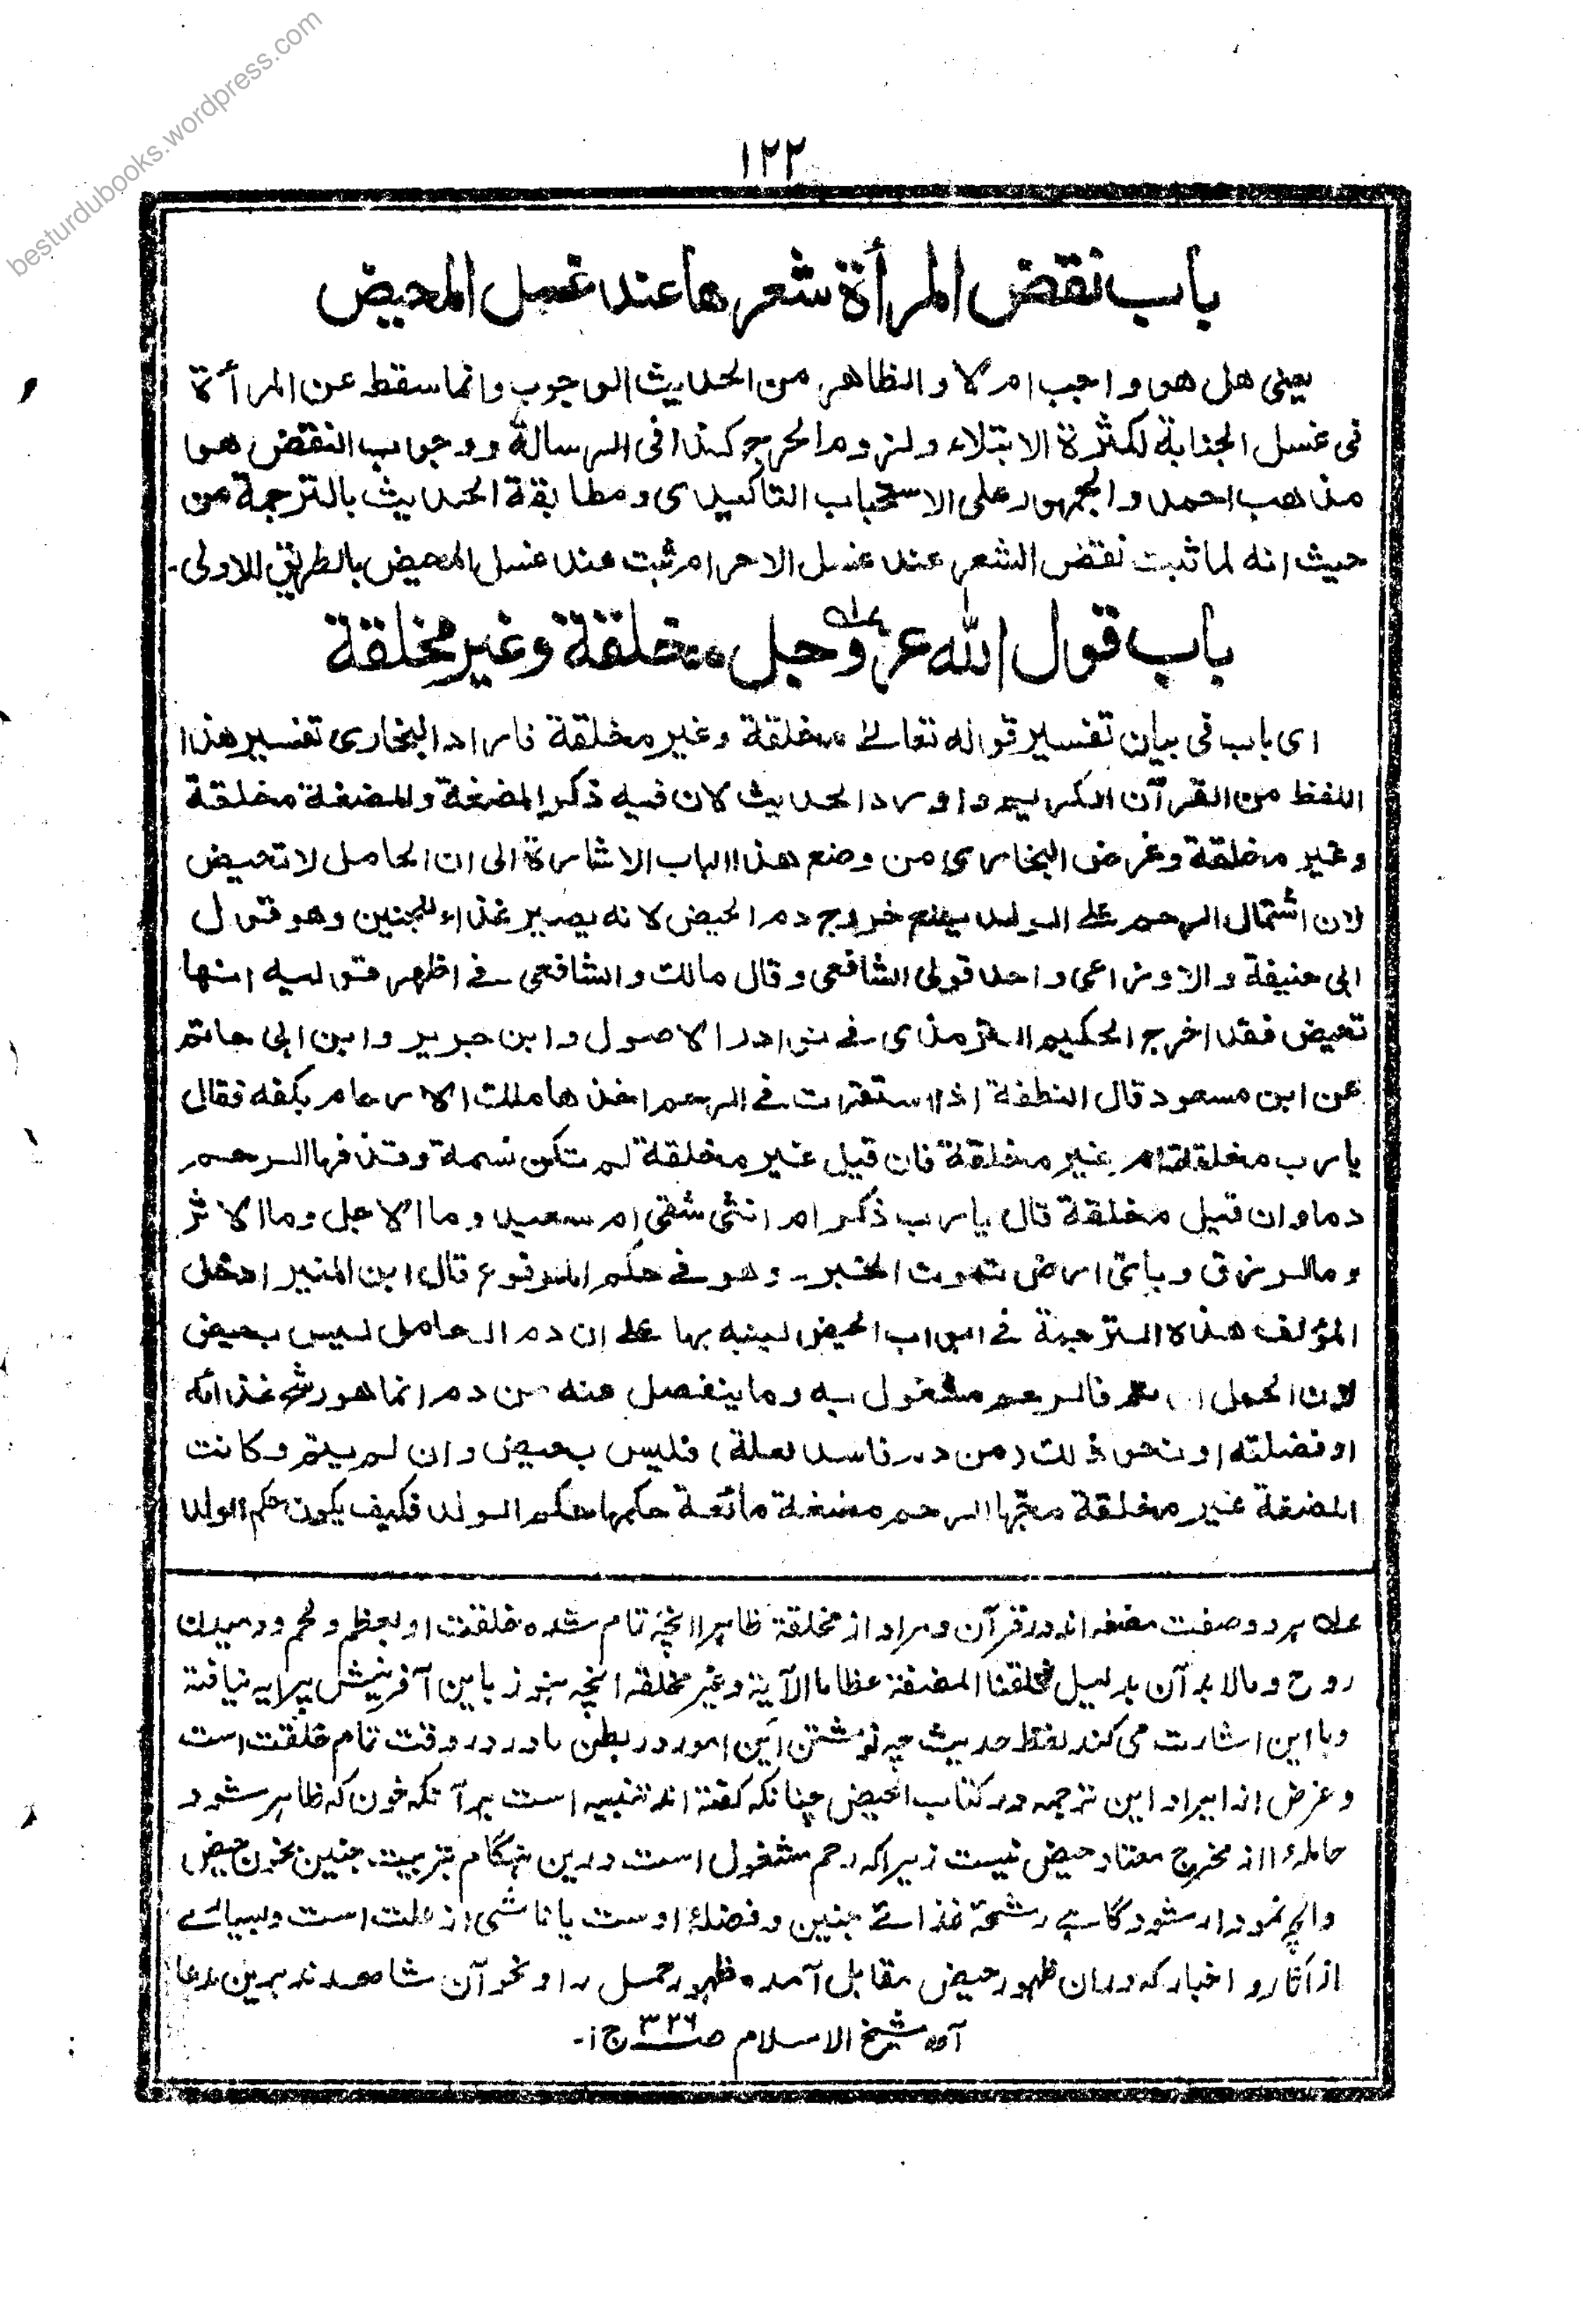 besturdubooks.wordpress.com
١٢٢
باب نقض المرأة شعرها عند غسل المحيض
يعنى هل هو واجب ام لا والظاهر من الحديث الوجوب وانما سقط عن المرأة
فى غسل الجنابة لكثرة الابتلاء ولزوم الحرج كذا فى الرسالة ووجوب النقض هو
مذهب احمد والجمهور على الاستحباب التاكيدى ومطابقة الحديث بالترجمة من
حيث انه لما ثبت نقض الشعر عند غسل الاحرام ثبت عند غسل المحيض بالطريق الاولى-
باب قول الله عز وجل مخلقة وغير مخلقة
اى باب فى بيان تفسير قوله تعالے مخلقة وغير مخلقة فاراد البخارى تفسير هذا
اللفظ من القرآن الكريم واورد الحديث لان فيه ذكر المضغة والمضغة مخلقة
وغير مخلقة وغرض البخارى من وضع هذا الباب الاشارة الى ان الحامل لا تحيض
لان اشتمال الرحم علے الولد يمنع خروج دم الحيض لانه يصير غذاء للجنين وهو قول
ابى حنيفة والاوزاعى واحد قولى الشافعى وقال مالك والشافعى فے اظهر قوليه انها
تحيض فقد اخرج الحكيم الترمذى فے نوادر الاصول وابن جرير وابن ابى حاتم
عن ابن مسعود قال النطفة اذا استقرت فے الرحم اخذها ملك الارحام بكفه فقال
يارب مخلقة ام غير مخلقة فان قيل غير مخلقة لم تكن نسمة وقذفها الرحم
دما وان قيل مخلقة قال يارب ذكر ام انثى شقى ام سعيد وما الاجل وما الاثر
وما الرزق وباى ارض تموت الخبر- وهو فے حكم المرفوع قال ابن المنير ادخل
المؤلف هذه الترجمة فے ابواب الحيض لينبه بها علے ان دم الحامل ليس بحيض
لان الحمل ان تم فالرحم مشغول به وما ينفصل عنه من دم انما هو رشح غذائه
او فضلته او نحو ذلك (من دم فاسد لعلة) فليس بحيض وان لم يتم وكانت
المضغة غير مخلقة مجها الرحم مضغة مائعة حكمها حكم الولد فكيف يكون حكم الولد
عله ہر دو صفت مضغہ اند در قرآن ومراد از مخلقة ظاہرا انچہ تمام شده خلقت او بعظم ولحم ودميدن
روح ومالابد آن بدليل فخلقنا المضغة عظاما الآية وغير مخلقہ انچہ ہنوز باين آفرينش پيرايہ نيافتة
وبا اين اشارت مى كند لفظ حديث چہ نوشتن اين امور در بطن مادر در وقت تمام خلقت است
وغرض از ايراد اين ترجمہ در كتاب الحيض چنانكہ گفتة اند تنبيہ است برآنكہ خون كہ ظاہر شود
حاملہ را از مخرج معتاد حيض نيست زيراكہ رحم مشغول است درين ہنگام بتربيت جنين بخون حيض
وانچہ نمودار شود گاہے رشحۂ غذائے جنين وفضلۂ اوست يا ناشى از علت است وبسيارے
از آثار و اخبار كہ دران ظهور حيض مقابل آمده ظهور حمل را ونحو آن شاهدند برين مدعا
آه شيخ الاسلام صـ ٣٢٦ ج ١-